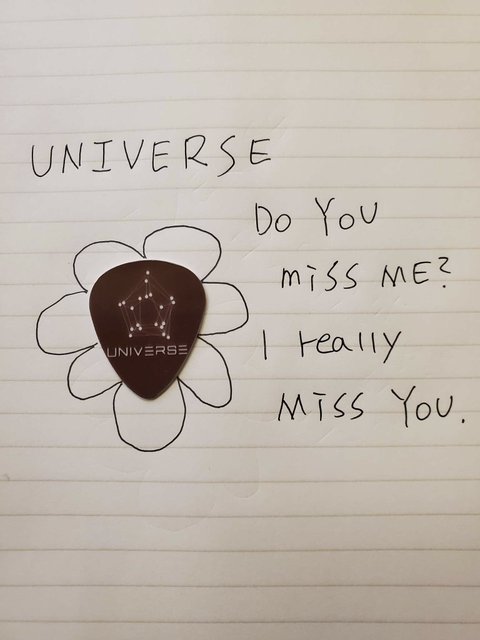 UNIVERSE
Do You
miss ME?
UNIVERSE
I really
Miss You.